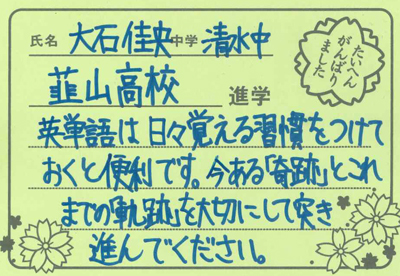 氏名 大石佳央 中学 清水中
韮山高校 進学
たいへん
がんばり
ました
英単語は日々覚える習慣をつけて
おくと便利です。今ある「奇跡」とこれ
までの「軌跡」を大切にして突き
進んでください。